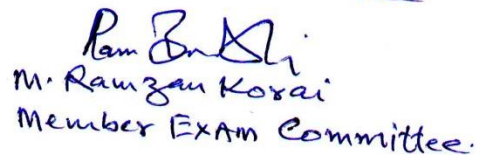 M. Ramzan Korai
Member Exam Committee.